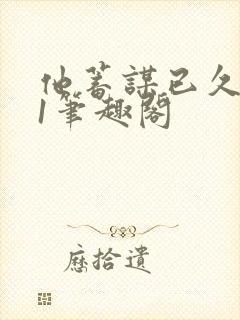 他蓄謀已久
1筆趣閣
歷拾遺